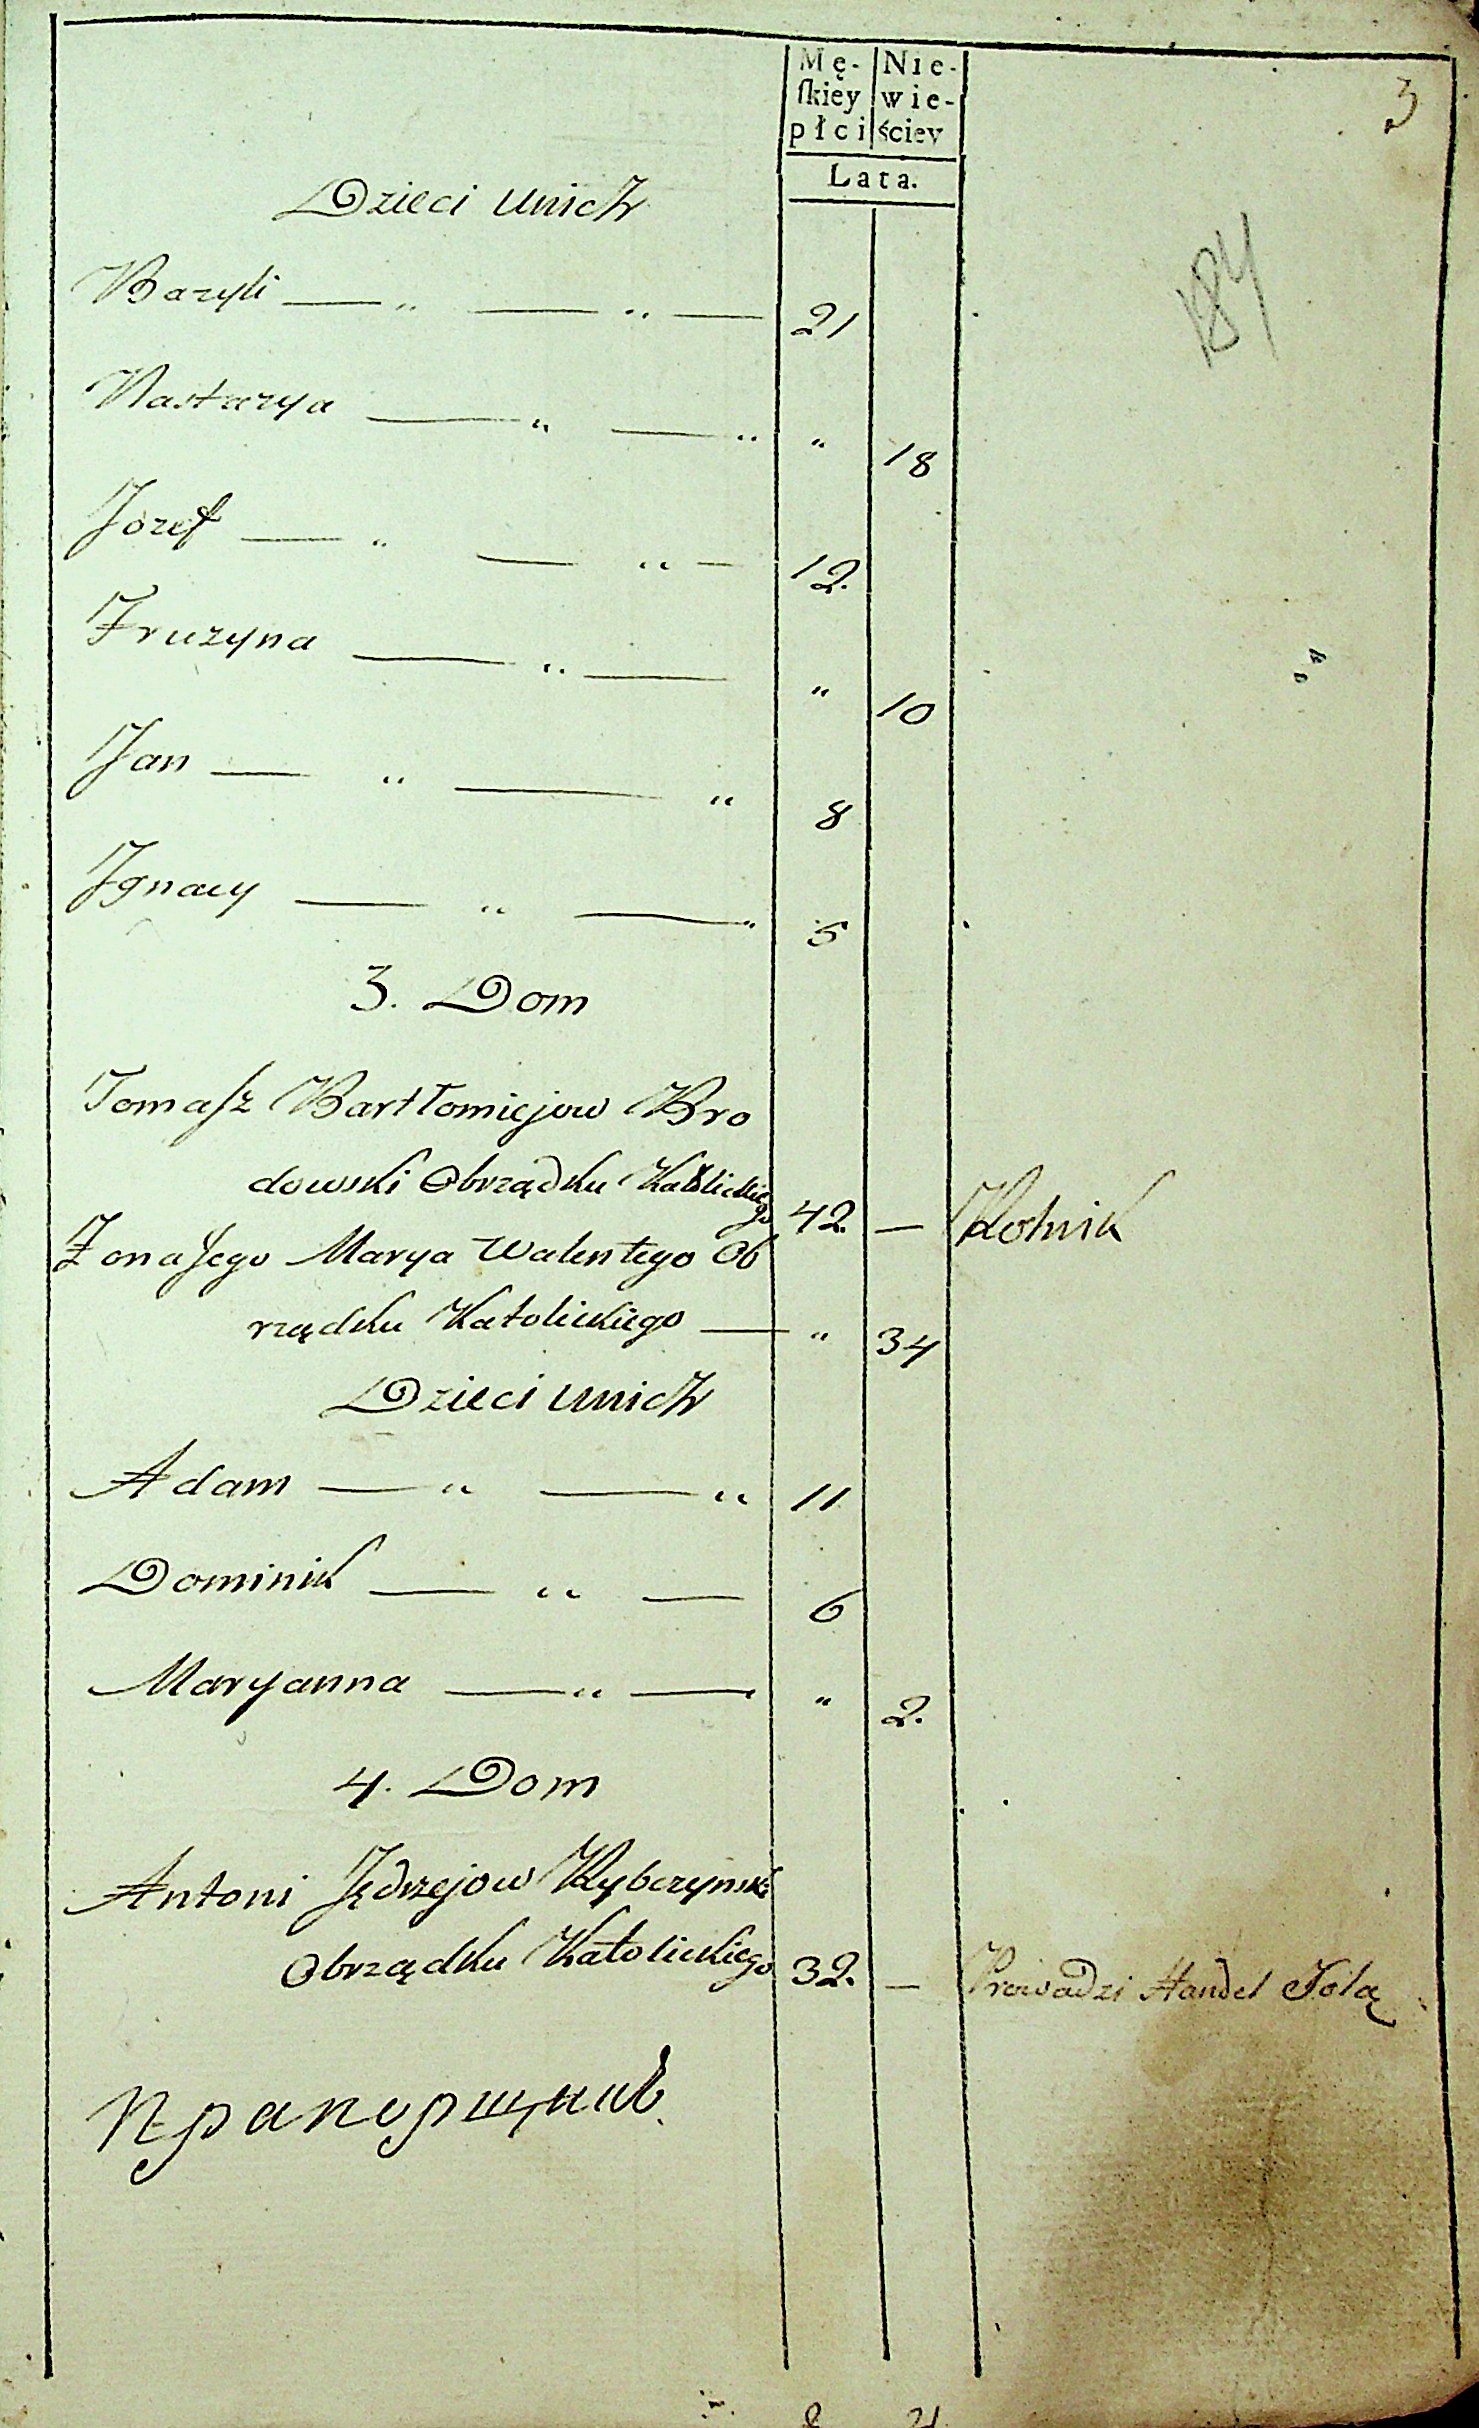 Mę- Nie-
ſkiey wie-
płci ściey
Lata.
3
184
Dzieci unich
Bazyli — " — " — 21
Nastazya — " — " " 18
Jozef — " — " — 12.
Fruzyna — " — " 10
Jan — " — " 8
Ignacy — " — " 5
3. Dom
Tomaſz Bartłomiejow Bro
dowski Obrządku Katolickiego 42. — Rolnik
Zona Jego Marya Walentego Ob
rządku Katolickiego — " 34
Dzieci unich
Adam — " — " 11
Dominik — " — 6
Maryanna — " — " 2.
4. Dom
Antoni Jędrzejow Rybczynski
Obrządku Katolickiego 32. — Prowadzi Handel Solą
Прапорщикъ
8 4